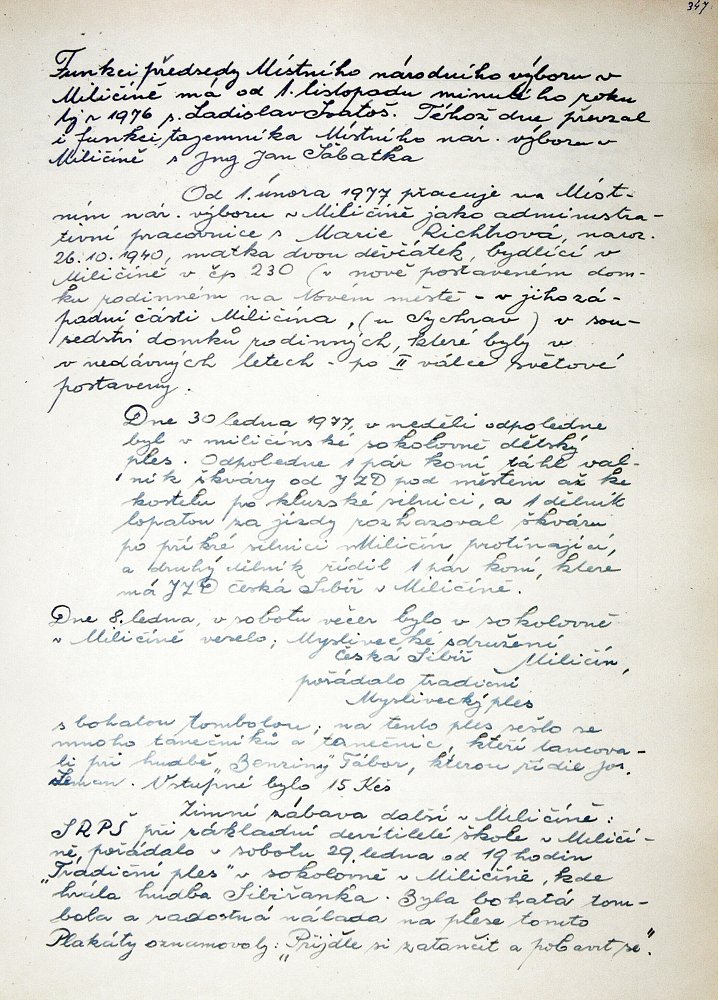 347
Funkci předsedy Místního národního výboru v
Miličíně má od 1. listopadu minulého roku
tj r 1976 s. Ladislav Svatoš. Téhož dne převzal
i funkci tajemníka Místního nár. výboru v
Miličíně s Jng Jan Sábatka
Od 1. února 1977 pracuje na Míst-
ním nár. výboru v Miličíně jako administra-
tivní pracovnice s Marie Richtrová, naroz.
26.10.1940, matka dvou děvčátek, bydlící v
Miličíně v čp 230 (v nově postaveném dom-
ku rodinném na Novém městě - v jihozá-
padní části Miličína, (u Sychrav) v sou-
sedství domků rodinných, které byly v
v nedávných letech - po II válce světové
postaveny.
Dne 30 ledna 1977, v neděli odpoledne
byl v miličínské sokolovně dětský
ples. Odpoledne 1 pár koní táhl val-
ník škváry od JZD pod městem až ke
kostelu po kluzské silnici, a 1 dělník
lopatou za jízdy rozhazoval škváru
po příkré silnici Miličín protínající,
a druhý dělník řídil 1 pár koní, které
má JZD česká Sibiř v Miličíně.
Dne 8. ledna, v sobotu večer bylo v sokolovně
v Miličíně veselo; Myslivecké sdružení
česká Sibiř Miličín,
pořádalo tradiční
Myslivecký ples
s bohatou tombolou; na tento ples sešlo se
mnoho tanečníků a tanečnic, kteří tancova-
li při hudbě „Benziny" Tábor, kterou řídil Jos.
Leman. Vstupné bylo 15 Kčs
Zimní zábava další v Miličíně:
SRPŠ při základní devítileté škole v Miličí-
ně, pořádalo v sobotu 29. ledna od 19 hodin
„Tradiční ples" v sokolovně v Miličíně, kde
hrála hudba Sibiřanka. Byla bohatá tom-
bola a radostná nálada na plese tomto
Plakáty oznamovaly: „Přijďte si zatančit a pobavit se".